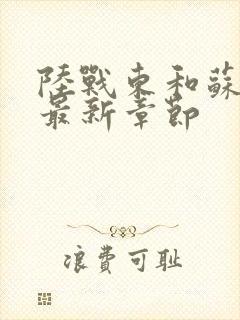 陸戰東和蘇
最新章節
浪費可耻